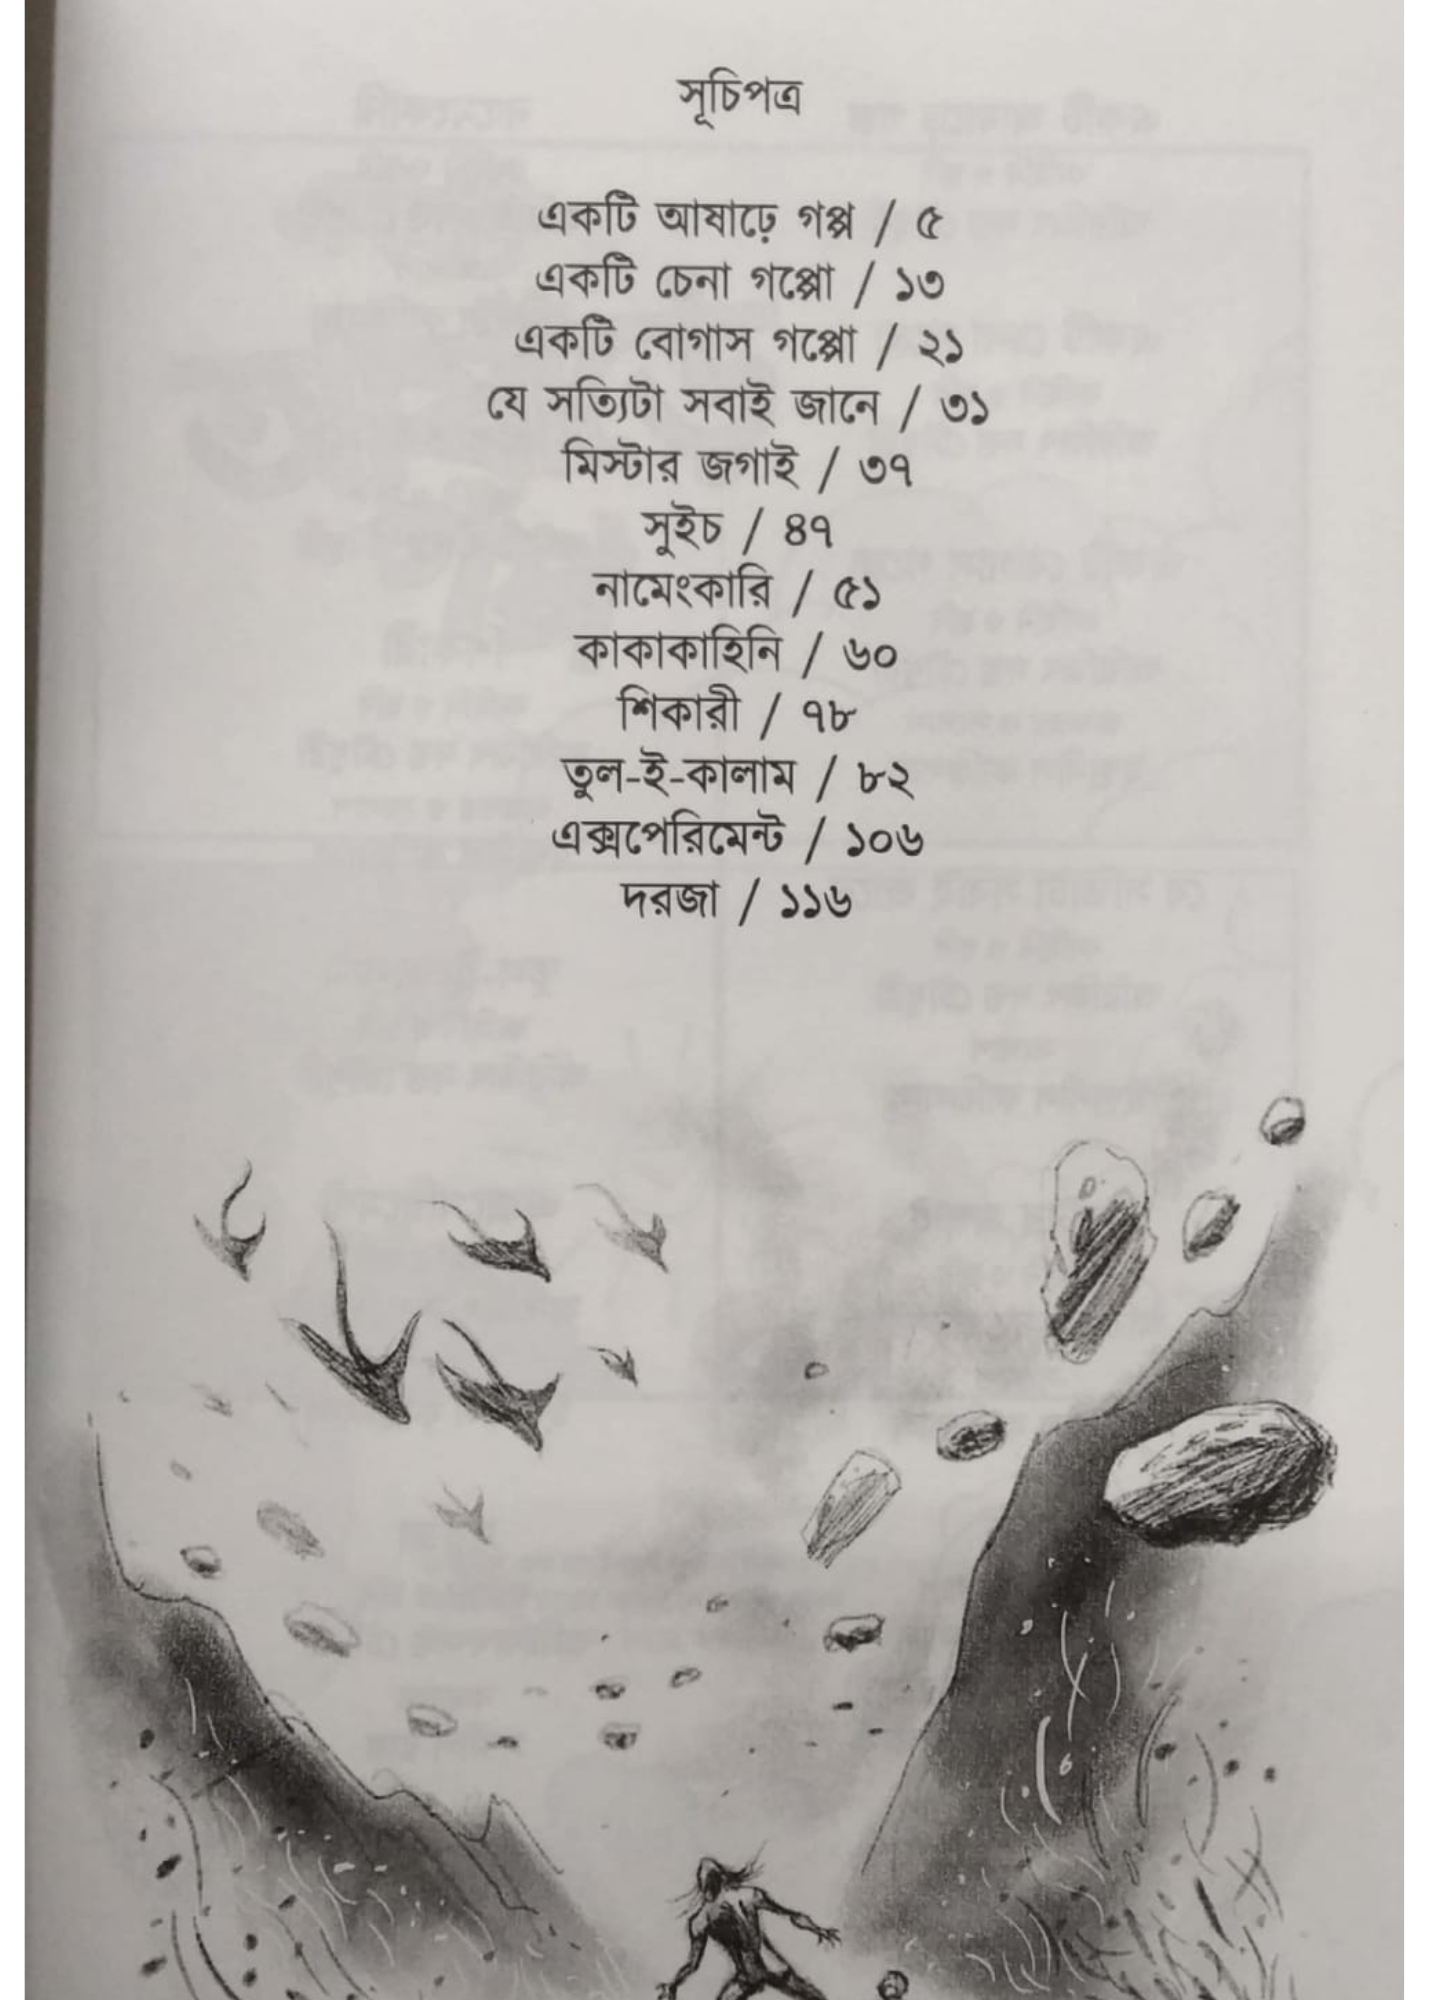 সূচিপত্র
একটি আষাঢ়ে গপ্প / ৫
একটি চেনা গপ্পো / ১৩
একটি বোগাস গপ্পো / ২১
যে সত্যিটা সবাই জানে / ৩১
মিস্টার জগাই / ৩৭
সুইচ / ৪৭
নামেংকারি / ৫১
কাকাকাহিনি / ৬০
শিকারী / ৭৮
তুল-ই-কালাম / ৮২
এক্সপেরিমেন্ট / ১০৬
দরজা / ১১৬